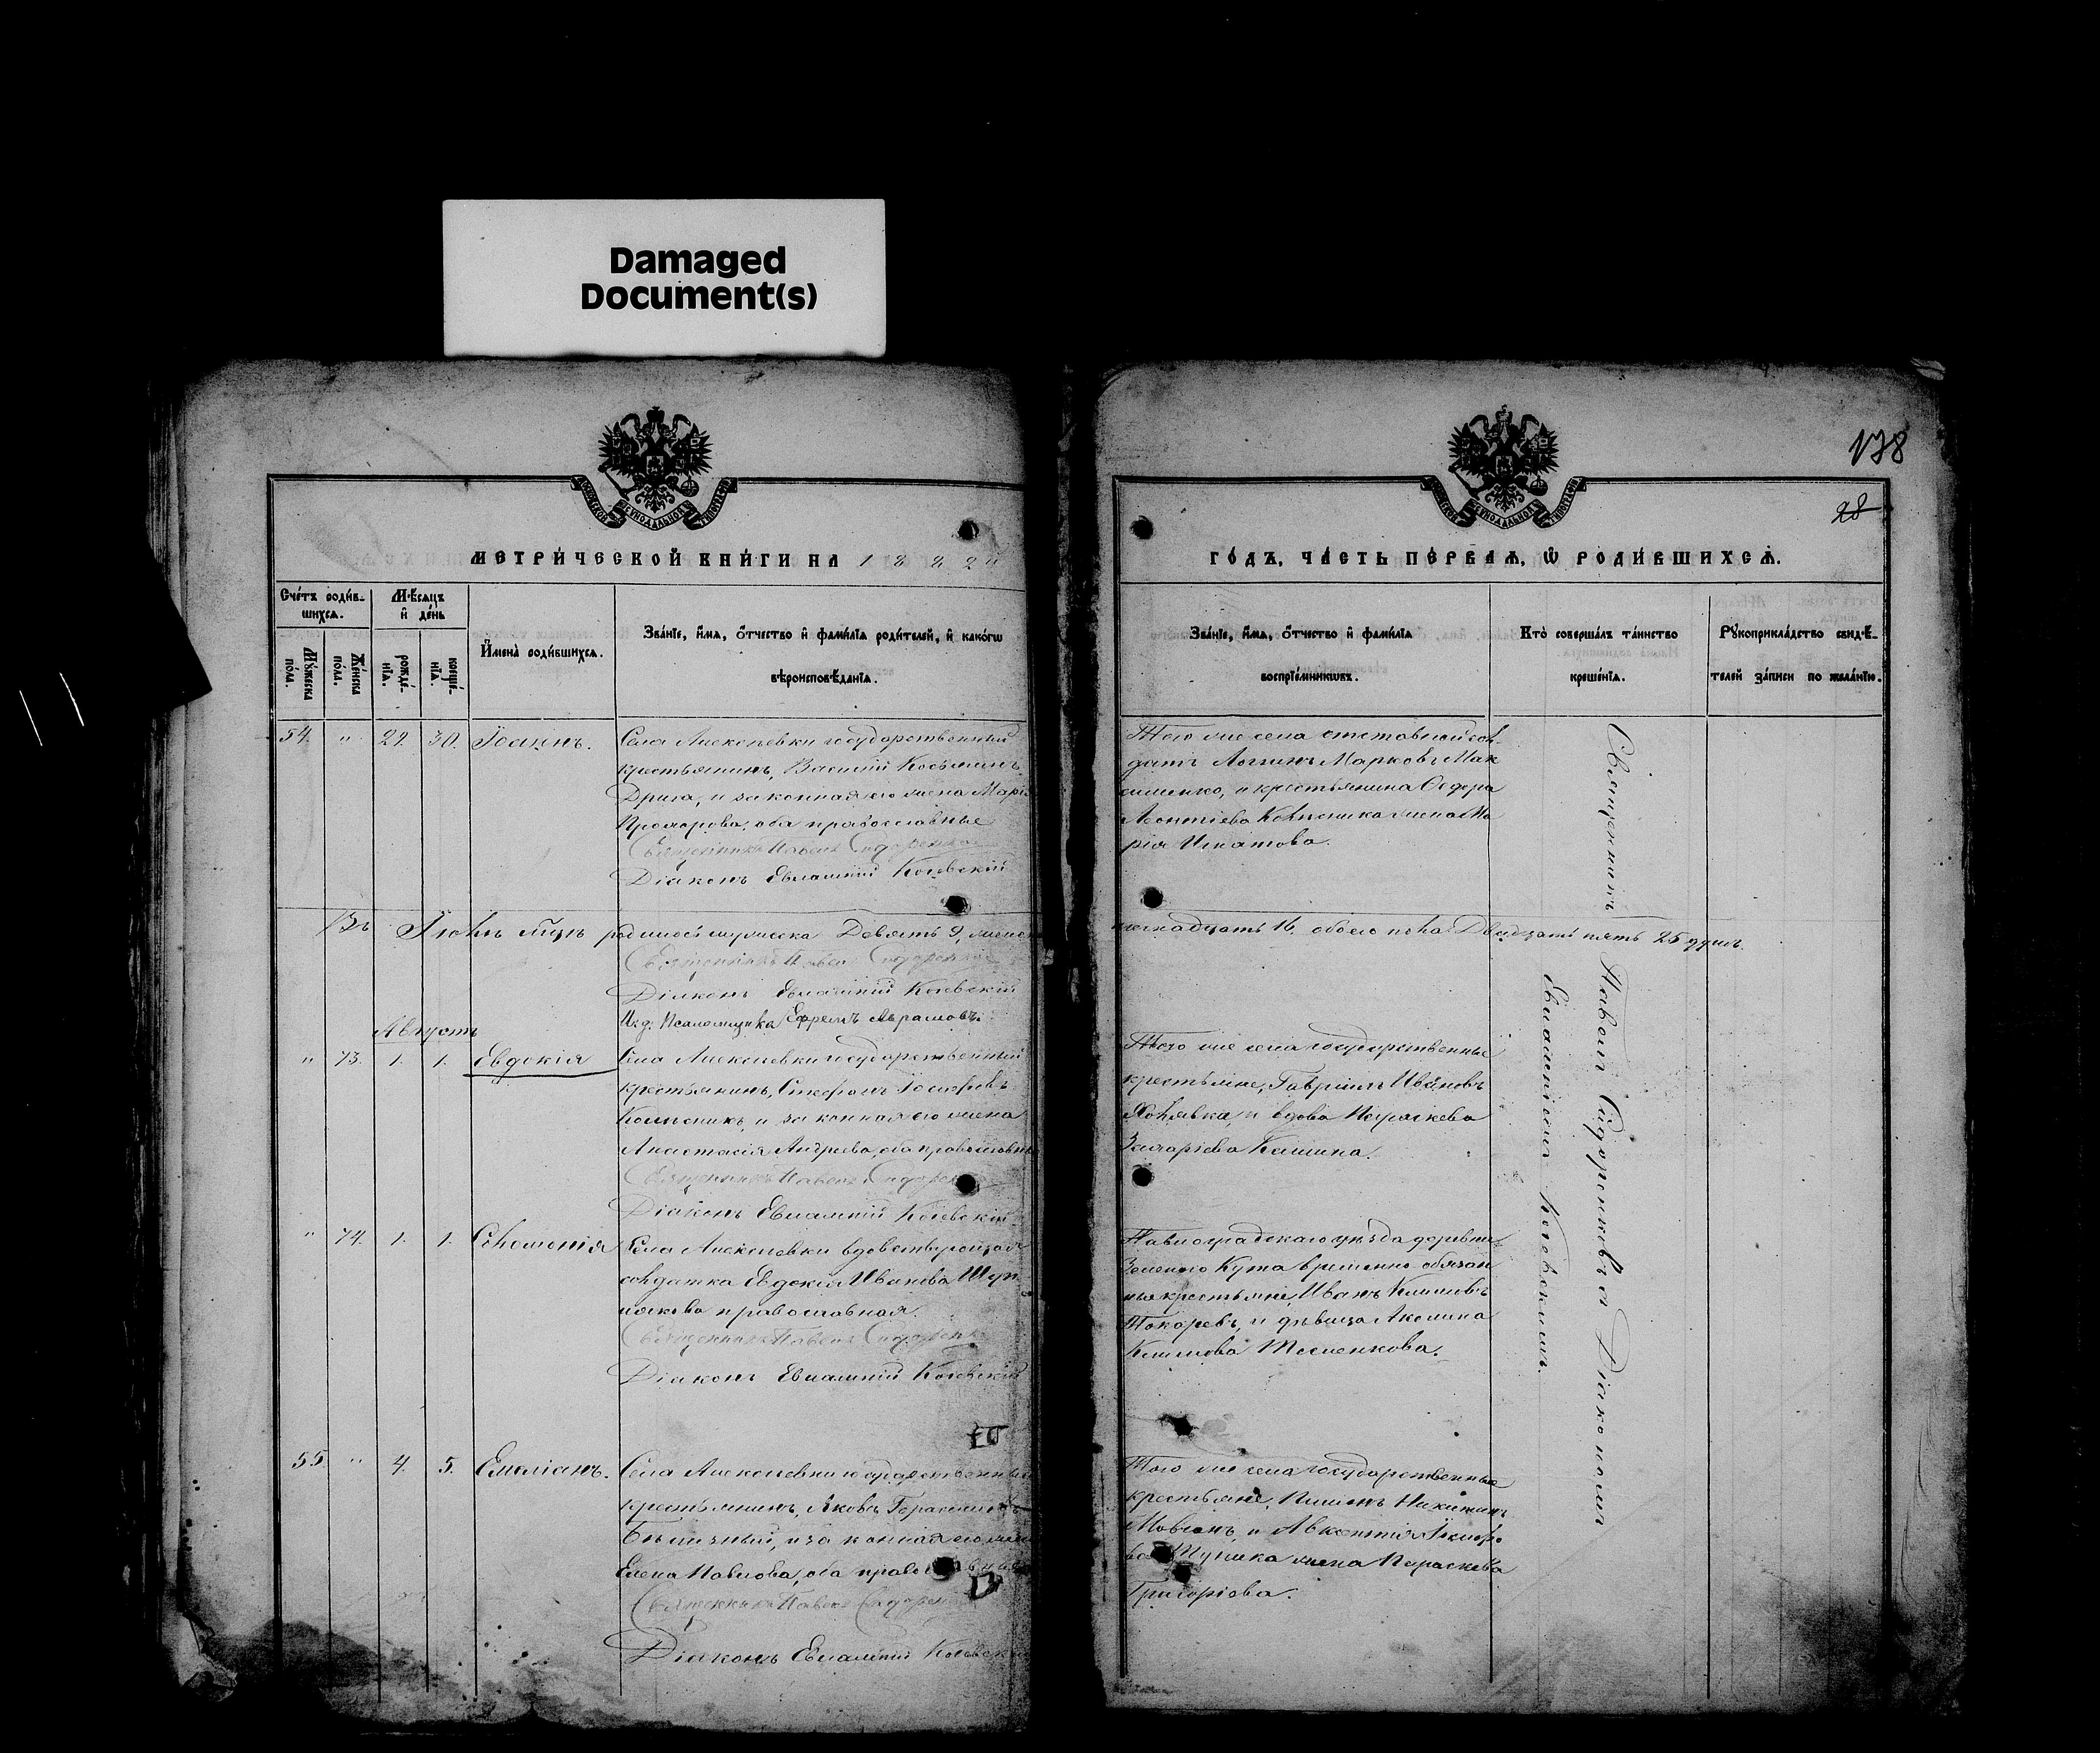 Damaged
Document(s)
138
28
МЕТРИ́ЧЕСКОЙ КНИ́ГИ НА 1882й
ГО́ДЪ, ЧА́СТЬ ПЕ́РВАЯ, Ѿ РОДИ́ВШИХСЯ.
Сче́тъ роди́в-
шихся.
Му́жеска по́ла.
Же́нска по́ла.
Мѣсяцъ
и҆ де́нь
рожде́-
нїѧ.
креще́-
нїѧ.
И҆мена̀ роди́вшихся.
Зва́нїе, и҆́мя, ѻ҆́тчество и҆ фами́лїя роди́телей, и҆ како́гѡ
вѣроисповѣ́данїя.
Зва́нїе, и҆́мя, ѻ҆́тчество и҆ фами́лїя
воспрїе́мникѡвъ.
Кто̀ соверша́лъ та́инство
креще́нїя.
Рꙋкоприкла́дство свидѣ́-
телей за́писи по жела́нїю.
54. " 29. 30. Іоаннъ.
Села Алексѣевки государственный
крестьянинъ, Василій Косьминъ
Дрига, и законная его жена Марія
Прохорова, оба православные
Священникъ Павелъ Сидоренко
Діаконъ Евлампій Коевскій
Того же села отставной сол-
датъ Логинъ Марковъ Мак
сименко, и крестьянина Ѳедора
Леонтіева Колесника жена Ма
рія Игнатова.
Въ Іюлѣ мцѣ родилось мужеска Девять 9, женск
шестнадцать 16. обоего пола Двадцать пять 25 душъ.
Священникъ Павелъ Сидоренко
Діаконъ Евлампій Коевскій
И. д. Псаломщика Ефремъ Аврамовъ.
Августъ
" 73. 1. 1. Евдокія
Села Алексѣевки государственный
крестьянинъ, Стефанъ Іосифовъ
Колесникъ, и законная его жена
Анастасія Андреева, оба православны
Священникъ Павелъ Сидоренко
Діаконъ Евлампій Коевскій
Того же села государственные
крестьяне, Гавріилъ Ивановъ
Халявка, и вдова Параскева
Захаріева Кашина.
" 74. 1. 1. Соломонія
Села Алексѣевки вдовствующая
солдатка Евдокія Иванова
православная.
Священникъ Павелъ Сидоренко
Діаконъ Евлампій Коевскій
Павлоградскаго уѣзда деревни
Зеленого Кута временно-обязан
ные крестьяне, Иванъ Климовъ
Токаревъ, и дѣвица Акилина
Климова
55. " 4. 5. Емеліанъ.
Села Алексѣевки государственный
крестьянинъ, Яковъ Герасимовъ
и законная его жена
Елена Павлова, оба православные
Священникъ Павелъ Сидоренко
Діаконъ Евлампій Коевскій
Того же села государственные
крестьяне, Пименъ Никитинъ
Мовчанъ, и Авксентія
жена Параскева
Григоріева.
Священникъ Павелъ Сидоренковъ съ Діакономъ
Евлампіемъ Коевскимъ.